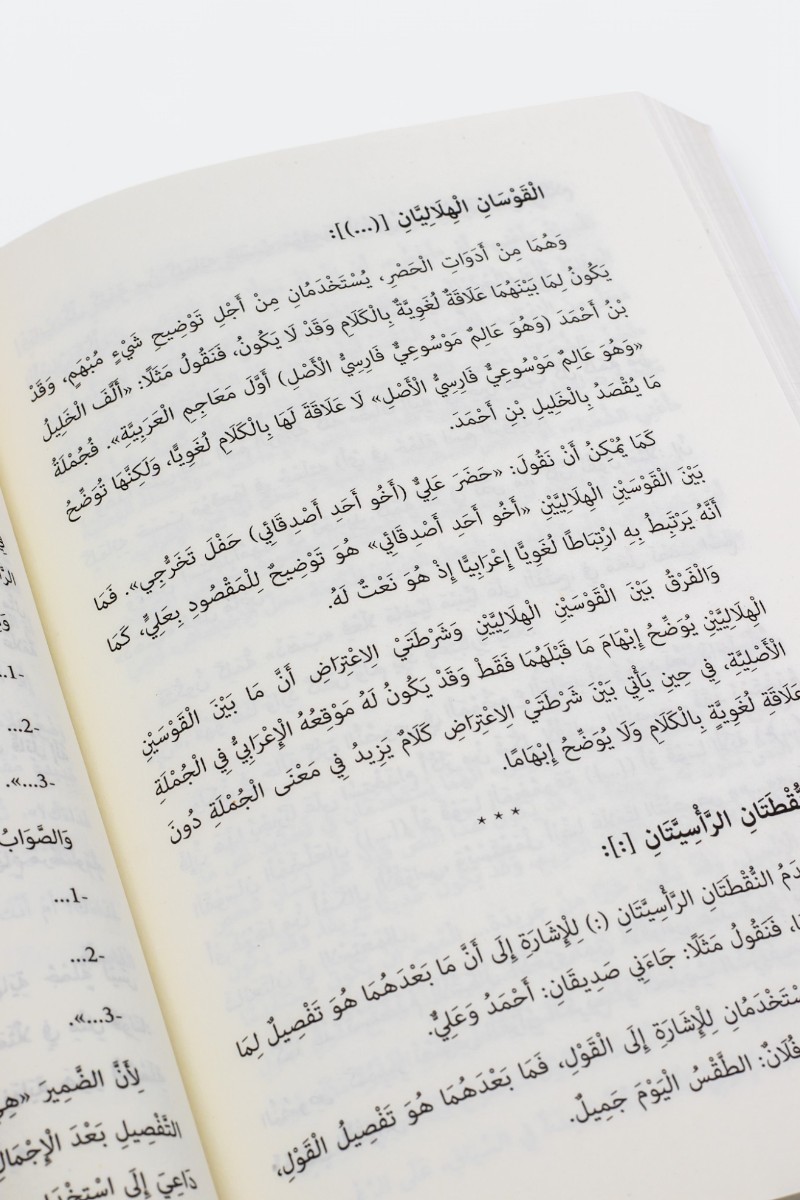 الْقَوْسَانِ الْهِلَالِيَّانِ [(...)]:
وَهُمَا مِنْ أَدَوَاتِ الْحَصْرِ، يُسْتَخْدَمَانِ مِنْ أَجْلِ تَوْضِيحِ شَيْءٍ مُبْهَمٍ، وَقَدْ
يَكُونُ لِمَا بَيْنَهُمَا عَلَاقَةٌ لُغَوِيَّةٌ بِالْكَلَامِ وَقَدْ لَا يَكُونُ، فَنَقُولُ مَثَلًا: «أَلَّفَ الْخَلِيلُ
بْنُ أَحْمَدَ (وَهُوَ عَالِمٌ مَوْسُوعِيٌّ فَارِسِيُّ الْأَصْلِ) أَوَّلَ مَعَاجِمِ الْعَرَبِيَّةِ». فَجُمْلَةُ
«وَهُوَ عَالِمٌ مَوْسُوعِيٌّ فَارِسِيُّ الْأَصْلِ» لَا عَلَاقَةَ لَهَا بِالْكَلَامِ لُغَوِيًّا، وَلَكِنَّهَا تُوَضِّحُ
مَا يُقْصَدُ بِالْخَلِيلِ بْنِ أَحْمَدَ.
كَمَا يُمْكِنُ أَنْ نَقُولَ: «حَضَرَ عَلِيٌّ (أَخُو أَحَدِ أَصْدِقَائِي) حَفْلَ تَخَرُّجِي». فَمَا
بَيْنَ الْقَوْسَيْنِ الْهِلَالِيَّيْنِ «أَخُو أَحَدِ أَصْدِقَائِي» هُوَ تَوْضِيحٌ لِلْمَقْصُودِ بِعَلِيٍّ، كَمَا
أَنَّهُ يَرْتَبِطُ بِهِ ارْتِبَاطًا لُغَوِيًّا إِعْرَابِيًّا إِذْ هُوَ نَعْتٌ لَهُ.
وَالْفَرْقُ بَيْنَ الْقَوْسَيْنِ الْهِلَالِيَّيْنِ وَشَرْطَتَيْ الِاعْتِرَاضِ أَنَّ مَا بَيْنَ الْقَوْسَيْنِ
الْهِلَالِيَّيْنِ يُوَضِّحُ إِبْهَامَ مَا قَبْلَهُمَا فَقَطْ وَقَدْ يَكُونُ لَهُ مَوْقِعُهُ الْإِعْرَابِيُّ فِي الْجُمْلَةِ
الْأَصْلِيَّةِ، فِي حِينِ يَأْتِي بَيْنَ شَرْطَتَيْ الِاعْتِرَاضِ كَلَامٌ يَزِيدُ فِي مَعْنَى الْجُمْلَةِ دُونَ
عَلَاقَةٍ لُغَوِيَّةٍ بِالْكَلَامِ وَلَا يُوَضِّحُ إِبْهَامًا.
* * *
الرَّأْسِيَّتَانِ [:]:
النُّقْطَتَانِ الرَّأْسِيَّتَانِ (:) لِلْإِشَارَةِ إِلَى أَنَّ مَا بَعْدَهُمَا هُوَ تَفْصِيلٌ لِمَا
فَنَقُولُ مَثَلًا: جَاءَنِي صَدِيقَانِ: أَحْمَدُ وَعَلِيٌّ.
لِلْإِشَارَةِ إِلَى الْقَوْلِ، فَمَا بَعْدَهُمَا هُوَ تَفْصِيلُ الْقَوْلِ،
فُلَانٌ: الطَّقْسُ الْيَوْمَ جَمِيلٌ.
1-...
2-...
3-...».
وَالصَّوَابُ
1-...
2-...
3-...».
لِأَنَّ الضَّمِيرَ
التَّفْصِيلِ بَعْدَ الْإِجْمَالِ
دَاعِيَ إِلَى